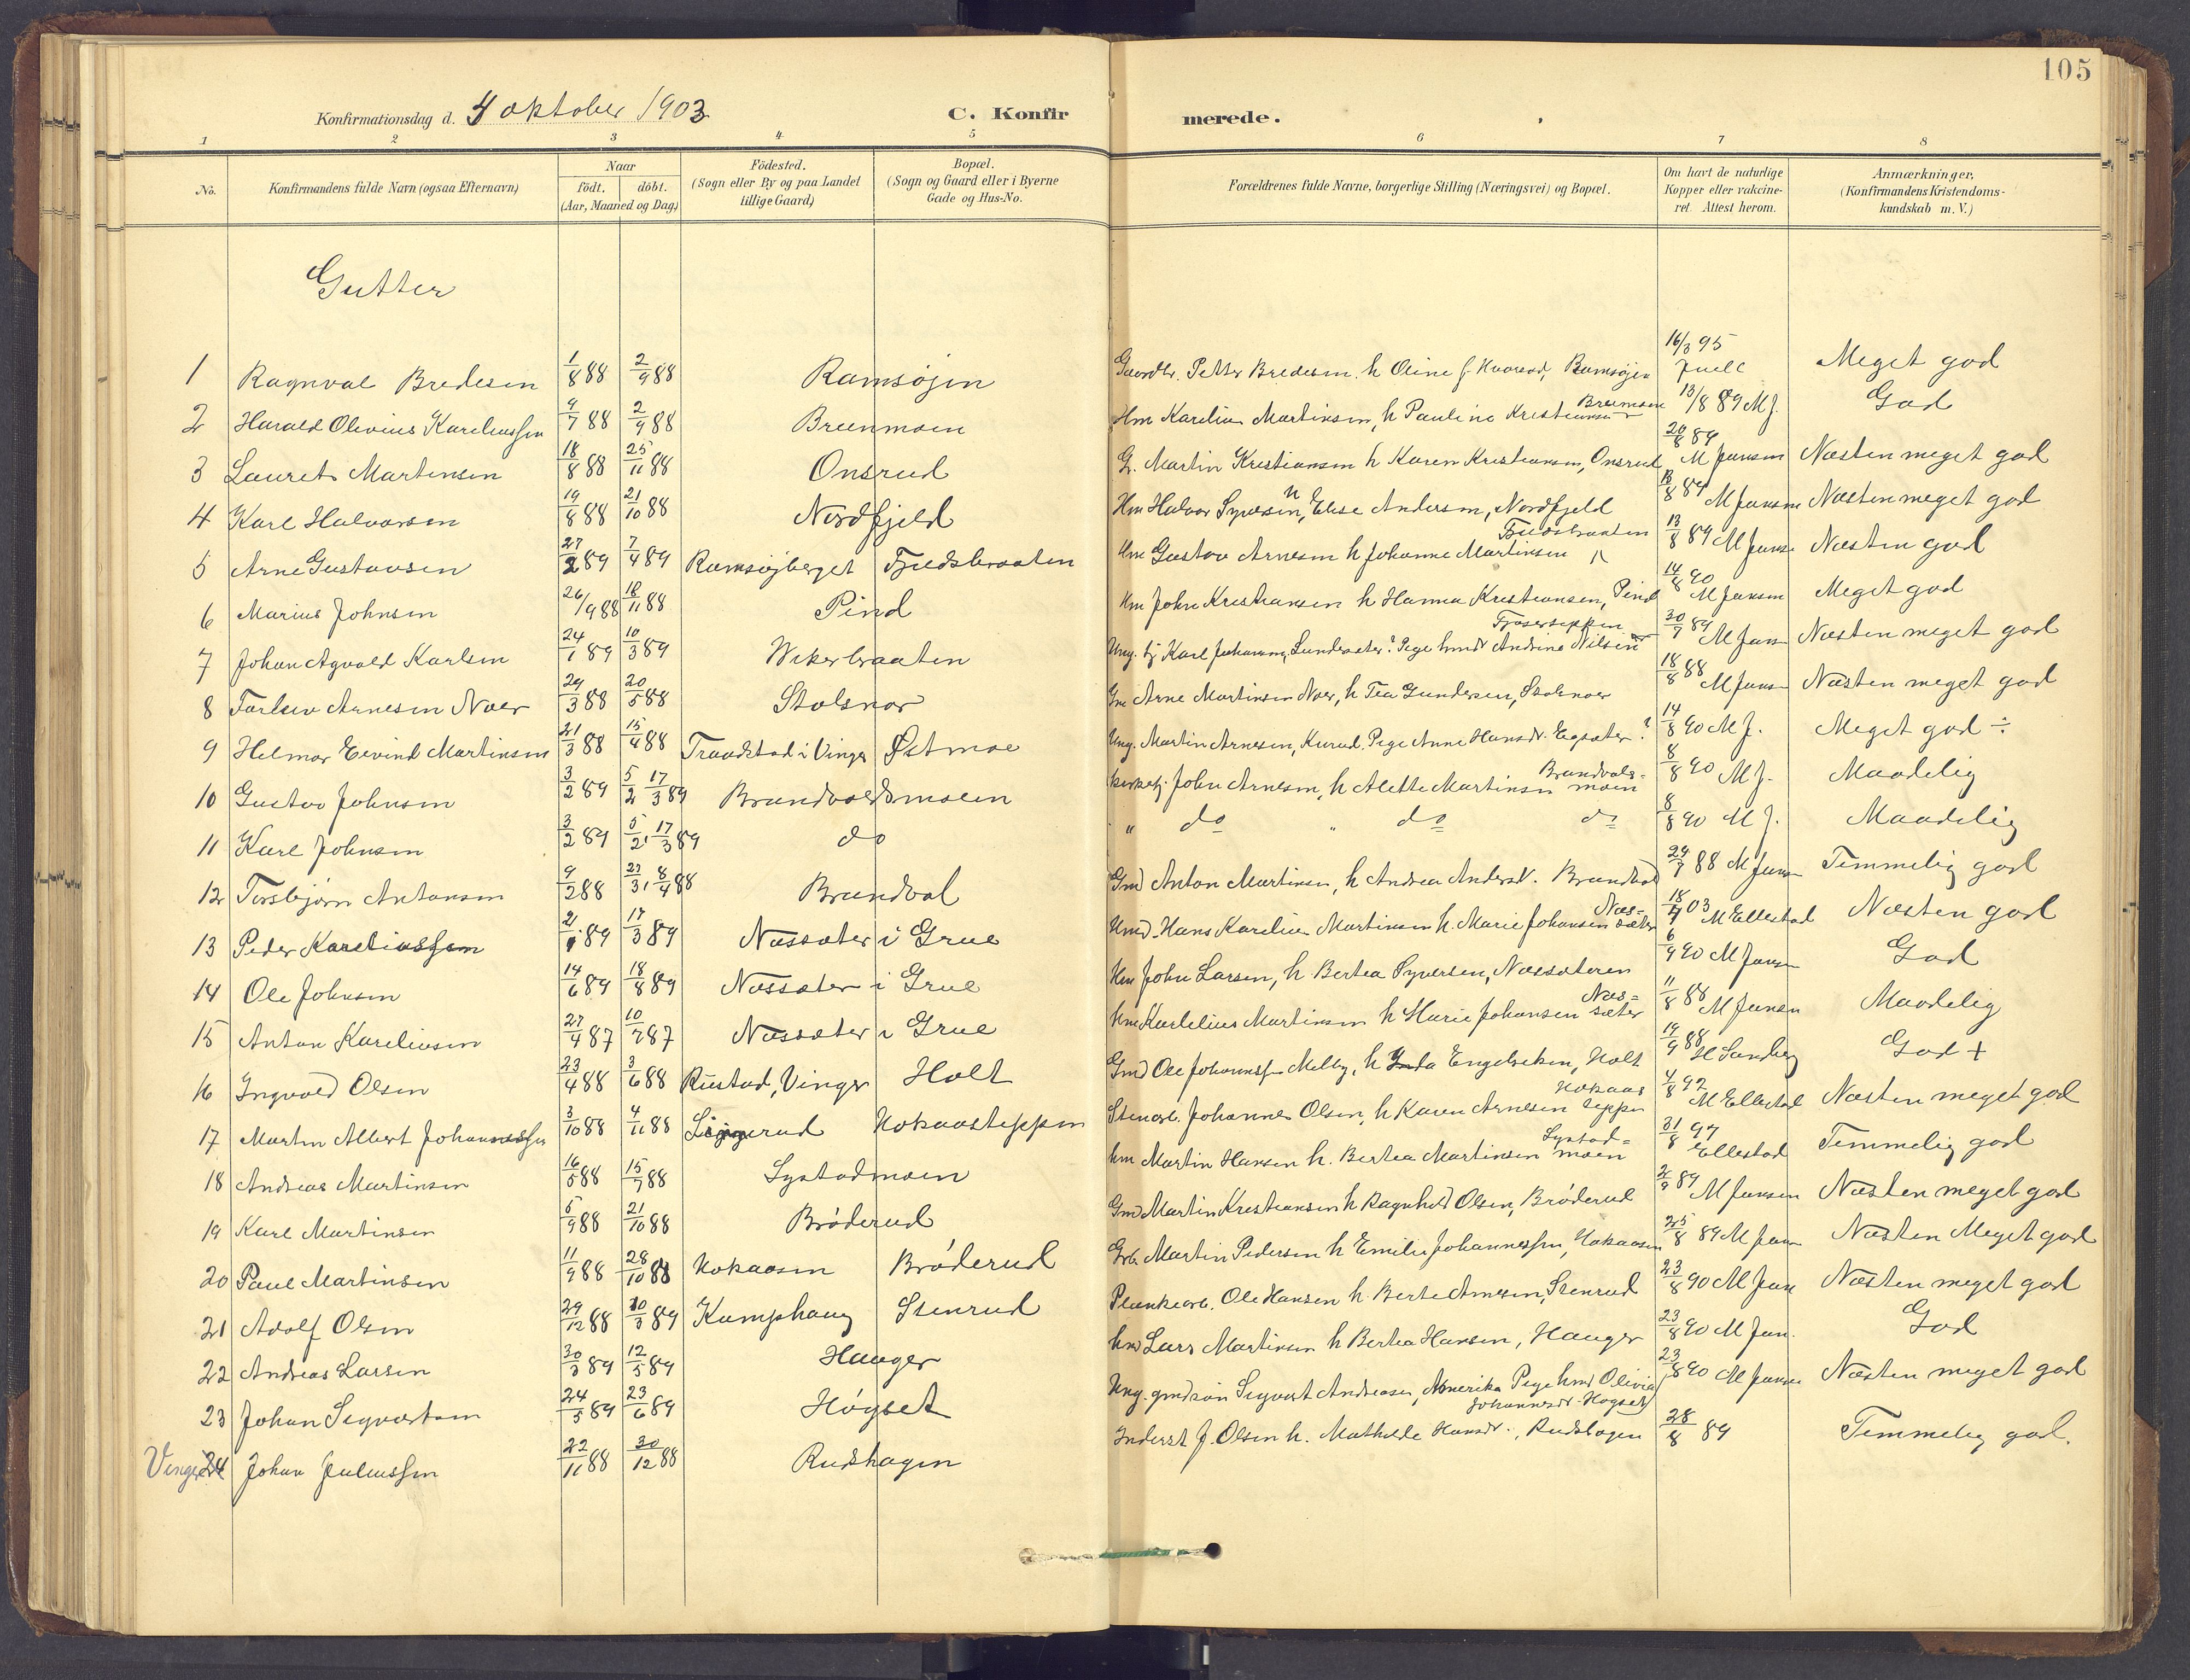 105
Konfirmationsdag d. 4 oktober 1903
C. Konfir merede.
1 2 3 4 5 6 7 8
No. Konfirmandens fulde Navn (ogsaa Efternavn) Naar födt. döbt. (Aar, Maaned og Dag) Födested. (Sogn eller By og paa Landet tillige Gaard) Bopæl. (Sogn og Gaard eller i Byerne Gade og Hus-No. Forældrenes fulde Navne, borgerlige Stilling (Næringsvei) og Bopæl. Om havt de naturlige Kopper eller vakcine- ret. Attest herom. Anmærkninger, (Konfirmandens Kristendoms- kundskab m. V.)
Gutter
1 Ragnval Bredesen 1/8 88 2/9 88 Ramsöjen Gaardbr. Petter Bredesen h Oline Ramsöjen 16/3 95 Juell Meget god
2 Harald Olivius Kareliussen 9/7 88 2/9 88 Breenmoen Hm Karelius Martinsen, h Pauline Kristiansen 13/8 89 M J. God
3 Laurets Martinsen 18/8 88 25/11 88 Onsrud G. Martin Kristiansen h Karen Kristiansen, Onsrud 20/8 89 M Jansen Næsten meget god
4 Karl Halvorsen 19/8 88 21/10 88 Nordfjeld Hm Halvor Syversen, h Elise Andersen, Nordfjeld 13/8 89 M Jansen Næsten meget god
5 Arne Gustavsen 27/2 89 7/4 89 Ramsöjberget Fjeldsbraaten Hm Gustav Arnesen h Johanne Martinsen Fjeldsbraaten 13/8 89 M Janse Næsten god
6 Marius Johnsen 26/9 88 18/11 88 Pind Hm John Kristiansen h Hanna Kristiansen, Pind 14/8 90 M Jansen Meget god
7 Johan Agvald Karlsen 24/1 89 10/3 89 Wikerbraaten Ung. tj Karl Johansen, Sundsæter? Pige hmdr Andrine Nilsen 30/7 89 M Jans Næsten meget god
8 Torleiv Arnesen Noer 29/3 88 20/5 88 Stolsnor Gm Arne Martinsen Noer, h Tea Gundersen, Stolsnoer 18/8 88 M Janse Næsten meget god
9 Helmar Eivind Martinsen 21/3 88 15/4 88 Traadstad i Vinger Östmoe Ung. Martin Arnesen, Kurud. Pige Anne Hansdr. Egsæter? 14/8 90 M J. Meget god ÷
10 Gustav Johnsen 3/2 89 5/2 17/3 89 Brandvoldsmoen Kirketj. John Arnesen, h Alette Martinsen Brandvols- moen 8/8 90 M J. Maadelig
11 Karl Johnsen 3/2 89 5/2, 17/3 89 do " do " do do 8/8 90 M J. Maadelig
12 Torsbjørn Antonsen 9/2 88 27/3, 8/4 88 Brandvol Gmd Anton Martinsen, h Andrea Andersdr. Brandvol 24/7 88 M Jansen Temmelig god
13 Peder Kareliussen 21/1 89 17/3 89 Næssæter i Grue Hmd. Hans Karelius Martinsen h. Marie Johansen Næs- sæter 18/4 03 M Ellestad Næsten god
14 Ole Johnsen 14/6 89 18/8 89 Næssæter i Grue Hm John Larsen, h Bertea Syversen, Næssæteren 6/9 90 M Jansen God
15 Anton Kareliusen 27/4 87 10/7 87 Næssæter i Grue hm Karlelius Martinsen h Marie Johansen Næs- sæter 11/8 88 M Jansen Maadelig
16 Ingvald Olsen 23/4 88 3/6 88 Rustad, Vinger Holt Gmd Ole Johannsen Melby, h Engebretsen, Holt 19/9 88 H Sandberg God +
17 Martin Albert Johannessen 3/10 88 4/11 88 Hokaasteppen Stenarb. Johannes Olsen, h Karen Arnesen Hokaas teppen 4/8 92 M Ellestad Næsten meget god
18 Andreas Martinsen 16/5 88 15/7 88 Systadmoen hm Martin Hansen h. Bertea Martinsen Systad- moen 31/8 97 Ellestad Temmelig god
19 Karl Martinsen 5/9 88 21/10 88 Bröderud Gmd Martin Kristiansen h Ragnhild Olsen, Bröderud 2/9 89 M Jansen Næsten meget god
20 Paul Martinsen 11/9 88 28/10 88 Hokaasen Bröderud Grb. Martin Pedersen h Emilie Johannessen, Hokaasen 25/8 89 M Jan Næsten Meget god
21 Adolf Olsen 29/12 88 10/3 89 Kamphaug Stenrud Plankearb. Ole Hansen h Berte Arnesen, Stenrud 23/8 90 M Jan Næsten meget god
22 Andreas Larsen 30/3 89 12/5 89 Hauger hm Lars Martinsen h Bertea Hansen, Hauger 23/8 90 M Jan. God
23 Johan Sigvartsen 24/5 89 23/6 89 Høgset Ung. gmdsön Sigvart Andreasen, Amerika Pige hmd Olivia Johannesdr. Høgset 23/8 90 M Jansen Næsten meget god
Vinger 24 Johan Juliussen 22/11 88 30/12 88 Rudshagen Inderst J. Olsen h. Mathilde Hansdr., Rudshagen 28/8 89 Temmelig god.